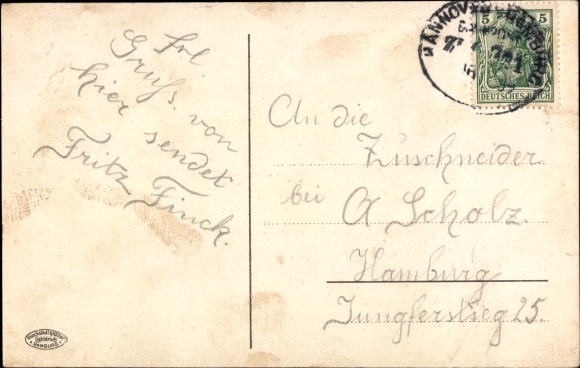 Frl.
Gruß von
hier sendet
Fritz Finck.
HANNOVER - HAMBURG
5 5
DEUTSCHES REICH
An die
Zuschneider
bei A Scholz.
Hamburg
Jungfernstieg 25.
Lichtdruck
HAMBURG